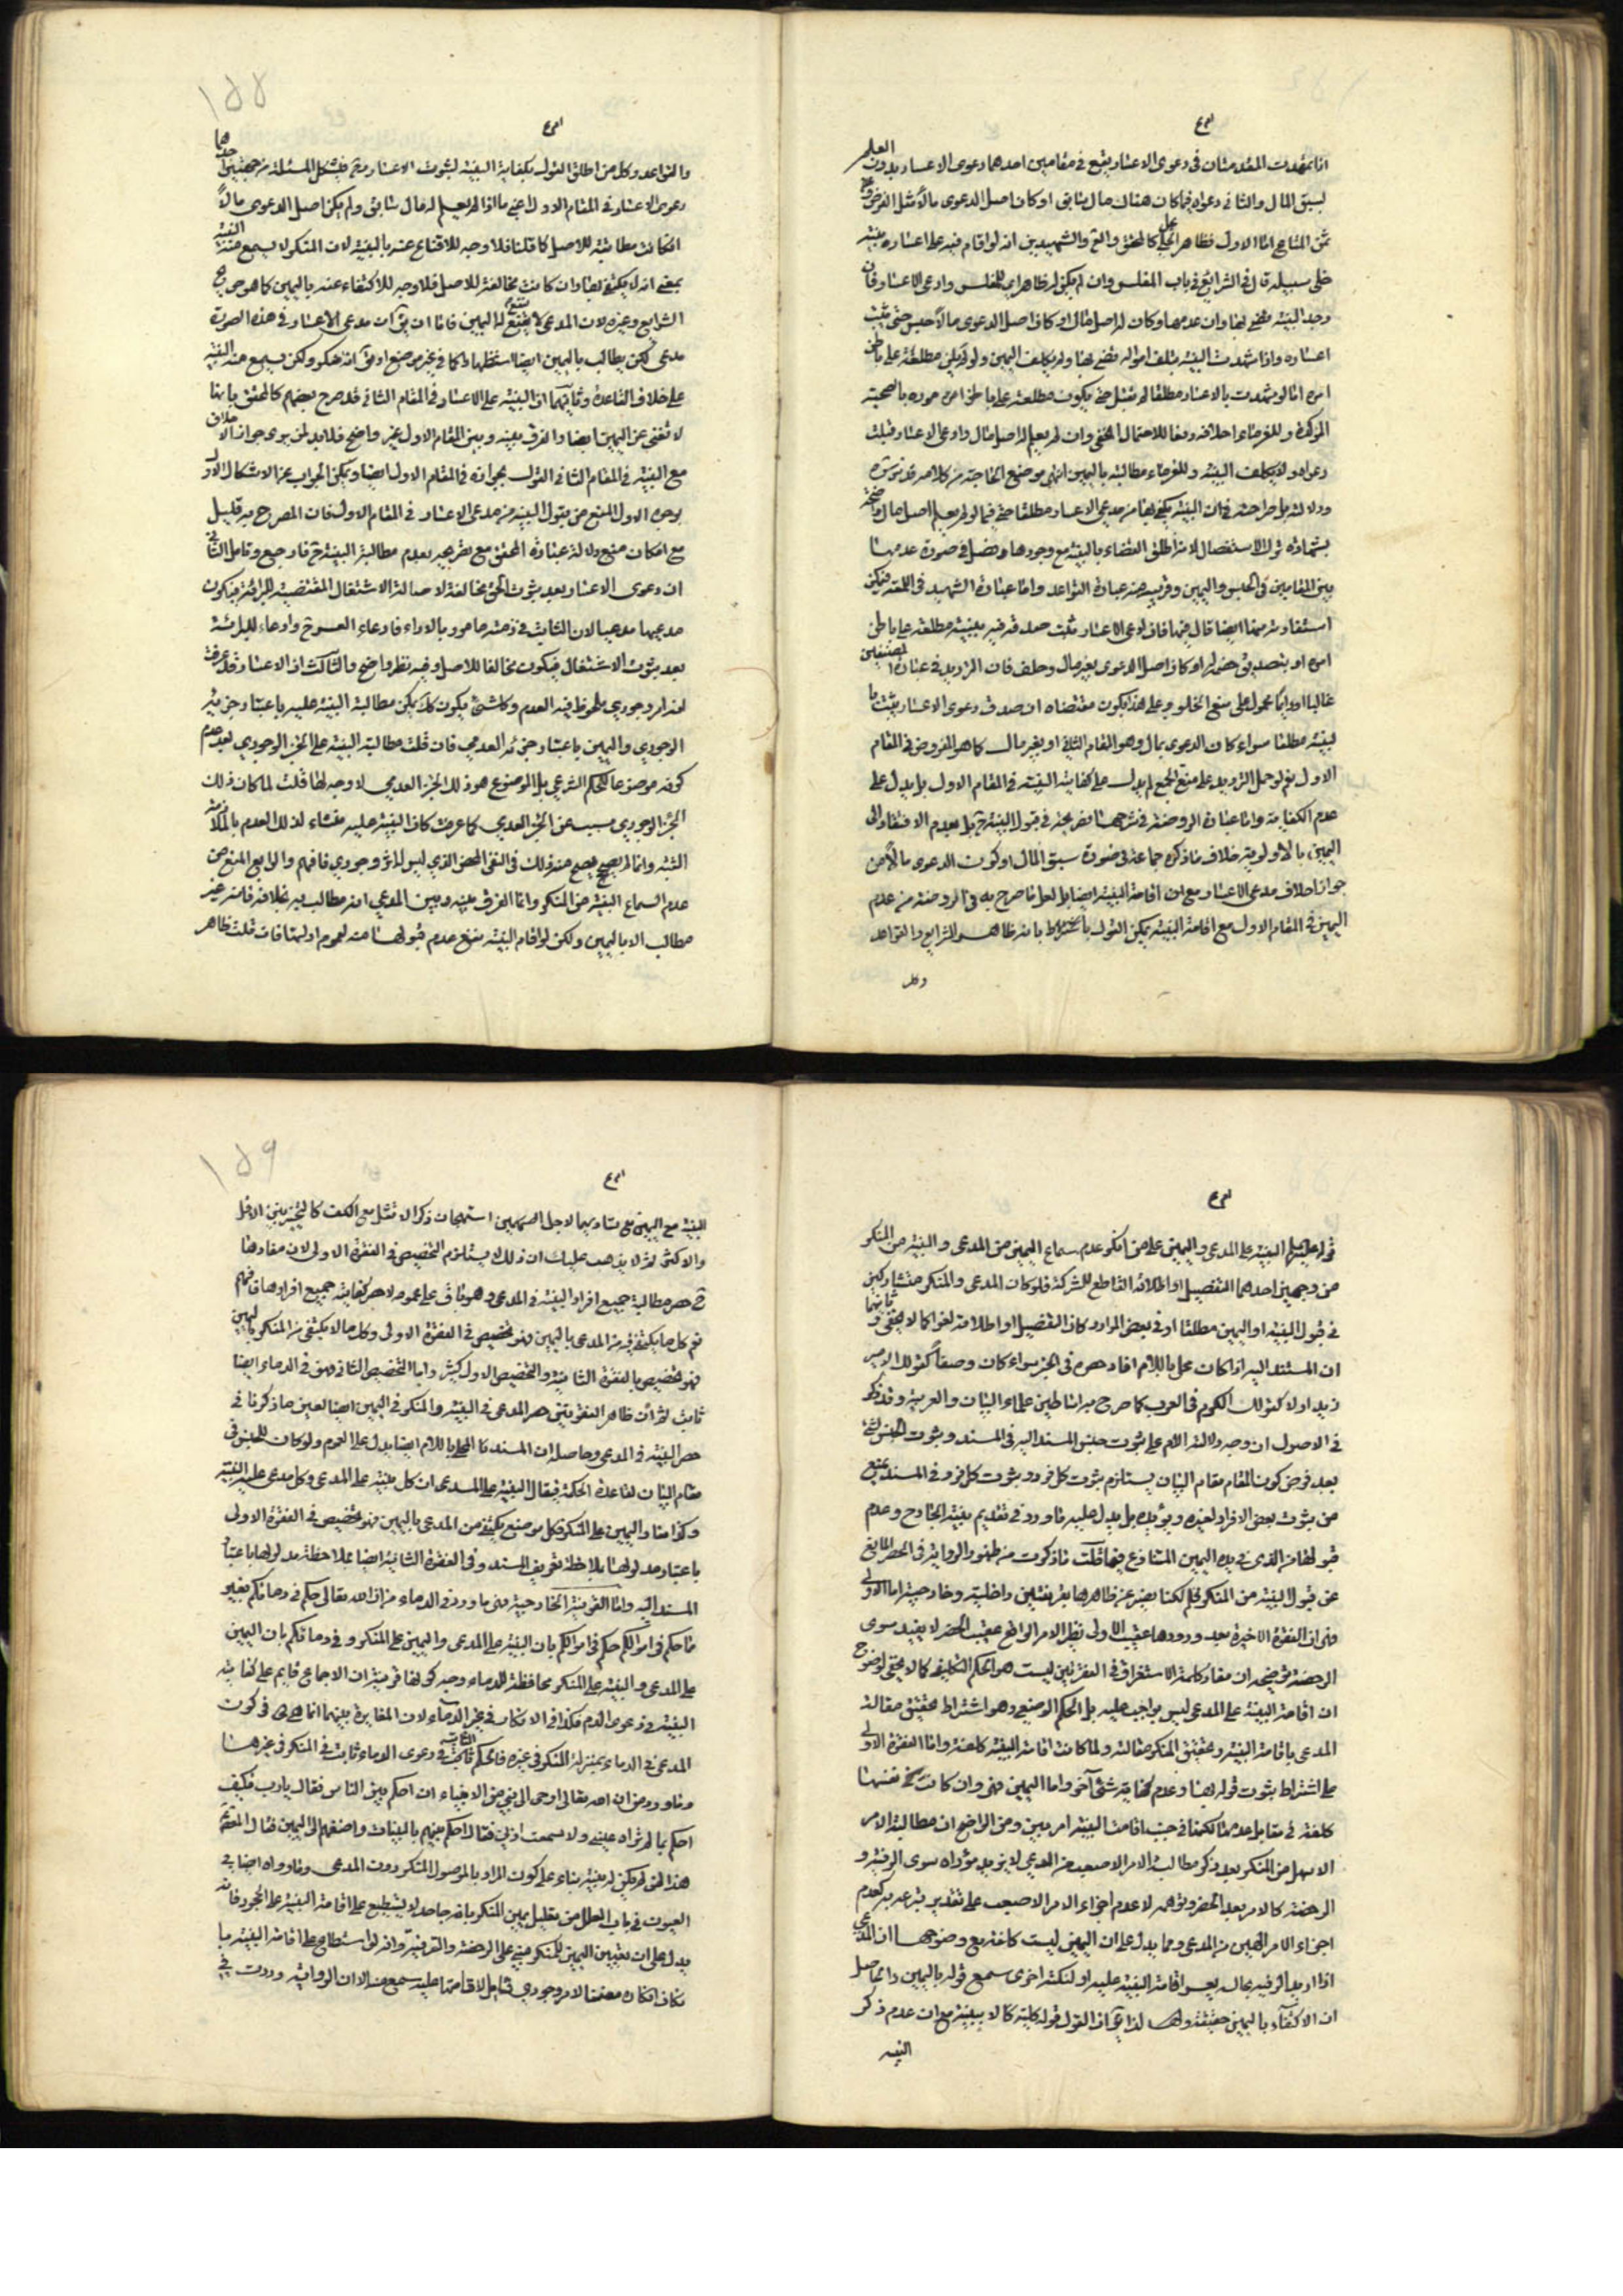 اذا تمهدت المقدمتان ففي دعوى الاعسار يقع في مقامين احدهما دعوى الاعسار بدون العلم
لسبق المال والثاني دعواه فيما كان هناك مال سابق او كان اصل الدعوى مالا مثل القرض و
ثمن المتاع اما الاول فظاهر كالمحقق والشهيدين انه لو اقام فيه على اعساره بينة
خلى سبيله قال في الشرايع في باب المفلس وان لم يكن له ظاهر وادعى الاعسار فان
وجد البينة قضى بها وان عدمها وكان له اصل مال او كان اصل الدعوى مالا حبس حتى يثبت
اعساره واذا شهدت البينة بتلف امواله قضى بها ولم يكلف اليمين ولو لم تكن مطلعة على باطن
امره اما لو شهدت بالاعسار مطلقا لم تقبل حتى يكون مطلعة على باطن اموره بالصحبة
المؤكدة وللغرماء احلافه دفعا للاحتمال الخفي وان لم يعلم له اصل مال وادعى الاعسار قبلت
دعواه ولا يكلف البينة وللغرماء مطالبته باليمين انتهى موضع الحاجة من كلامه
ودلالته بل صراحته في ان البينة يكفي بها من مدعي الاعسار مطلقا حتى فيما لو لم يعلم اصل مال واضحة
بشهادة ترك الاستفصال لانه اطلق القضاء بالبينة مع وجودها وفصل في صورة عدمها
بين المقامين في الحبس واليمين وقريب منه عبارة القواعد واما عبارة الشهيد في اللمعة فيمكن
استفادته منها ايضا قال فيها فان ادعى الاعسار ثبت صدقه فيه ببينة مطلعة على باطن
امره او بتصديق خصمه او كان اصل الدعوى بغير مال وحلف فان الترديد في عبارة المصنفين
غالبا او دايما محمول على منع الخلو وعلى هذا يكون مقتضاه ان صدق دعوى الاعسار يثبت با
لبينة مطلقا سواء كان الدعوى بمال وهو المقام الثاني او بغير مال كما هو المفروض في المقام
الاول نعم لو حمل الترديد على منع الجمع لم يدل على كفاية البينة في المقام الاول بل يدل على
عدم الكفاية واما عبارة الروضة في شرحها في قبول البينة بل بعدم الافتقار الى
اليمين بالاولوية خلاف ما ذكره جماعة في صورة سبق المال او كون الدعوى مالا من
جواز احلاف مدعي الاعسار مع ان اقامة البينة ايضا بل لعل ما صرح به في الروضة من عدم
اليمين في المقام الاول مع اقامة البينة يمكن القول بانه ظاهر الشرايع والقواعد
وكل
والقواعد وكل من اطلق القول بكفاية البينة لثبوت الاعسار فيشكل المسئلة من جهتين احدهما
دعوى الاعسار في المقام الاول اعني ما اذا لم يعلم له مال سابق ولم يكن اصل الدعوى مالا
ان كانت مطابقة للاصل كما قلنا فلا وجه للاقناع عنه بالبينة لان المنكر لا يسمع منه البينة
بمعنى انه لا يكتفى بها وان كانت مخالفة للاصل فلا وجه للاكتفاء عنه باليمين كما هو صريح
الشرايع وغيره لان المدعي لا يقنع له اليمين فاما ان يق ان مدعي الاعسار في هذه الصورة
مدعي لكن يطالب باليمين ايضا استظهارا كما في غير موضع او يق انه منكر ولكن يسمع منه البينة
على خلاف القاعدة وثانيهما ان البينة على الاعسار في المقام الثاني قد صرح بعضهم كالمحقق بانها
لا تغني عن اليمين ايضا والفرق بينه وبين المقام الاول غير واضح فلا بد لمن يرى جواز الاحلاف
مع البينة في المقام الثاني القول بجوازه في المقام الاول ايضا ويمكن الجواب عن الاشكال الاول
بوجوه الاول المنع عن قبول البينة من مدعي الاعسار في المقام الاول فان المصرح به قليل
مع امكان منع دلالة عبارة المحقق مع تصريحه بعدم مطالبة البينة فراجع وتامل الثاني
ان دعوى الاعسار بعد ثبوت الحق مخالفة لاصالة الاشتغال المقتضية للبرائة فيكون
مدعيها مدعيا لان الثابت في ذمته مامور بالاداء فادعاء العسر وادعاء للبرائة
بعد ثبوت الاشتغال فيكون مخالفا للاصل وفيه نظر واضح والثالث ان الاعسار قد عرفت
انه امر وجودي ملحوظ فيه العدم وكل شيئ يكون كك يمكن مطالبة البينة عليه باعتبار جزئه
الوجودي واليمين باعتبار جزئه العدمي فان قلت مطالبة البينة على الجزء الوجودي بعد عدم
كونه موضوعا للحكم الشرعي بل الموضوع هو ذلك الجزء العدمي لا وجه لها قلت لما كان ذلك
الجزء الوجودي مسبب عن الجزء العدمي كما عرفت كان البينة عليه منشاء لذلك العدم بالملازمة
البتة وانما لم يصح منه ذلك في النفي المحض الذي ليس لاثر وجودي فافهم والرابع المنع من
عدم السماع البينة من المنكر وانما الفرق بينه وبين المدعي انه مطالب به بخلافه فانه غير
مطالب الا باليمين ولكن لو اقام البينة نمنع عدم قبولها منه لعموم ادلتها فان قلت ظاهر
قوله البينة على المدعي واليمين على من انكر عدم سماع اليمين من المدعي والبينة من المنكر
من وجهين احدهما التفصيل او اطلاقه القاطع للشركة فلو كان المدعي والمنكر متشاركين
في قبول البينة او اليمين مطلقا او في بعض الموارد كان التفصيل او اطلاقه لغوا كما لا يخفى وثانيهما
ان المسند اليه اذا كان محلى باللام افاد حصره في الخبر سواء كان وصفا كقولك الامير
زيد او لا كقولك الكرم في العرب كما صرح به اساطين علماء البيان والعربية وقد ذكر
في الاصول ان وجه دلالة اللام على ثبوت جنس المسند اليه في المسند وثبوت الجنس لشيئ
بعد فرض كون المقام مقام البيان يستلزم ثبوت كل فرد وثبوت كل فرد في المسند يمنع
من ثبوت بعض الافراد لغيره ويؤيده بل يدل عليه ما ورد في تقديم بينة الخارج وعدم
قبولها من الذي في يده اليمين المتنازع فيها قلت ما ذكرت من ظهور الرواية في الحصر المانع
عن قبول البينة من المنكر مسلم لكنا نصرفه عن ظاهرها بقرينتين داخلية وخارجية اما الاولى
فهي ان الفقرة الاخيرة بعد ورودها عقيب الاولى نظير الامر الواقع عقيب الحظر لا يفيد سوى
الرخصة توضيحه ان مفاد كلمة الاستغراق في الفقرتين ليست هو الحكم التكليفي كما لا يخفى لوضوح
ان اقامة البينة على المدعي ليس بواجب عليه بل الحكم الوضعي وهو اشتراط تحقيق مقالة
المدعي باقامة البينة وتحقيق المنكر مقالته ولما كانت اقامة البينة كلفة واما الفقرة الاولى
على اشتراط ثبوت قوله بها وعدم كفاية شيئ آخر واما اليمين فهي وان كانت في نفسها
كلفة في مقابل عدمها لكنها في جنب اقامة البينة امر هين ومن الواضح ان مطالبة الامر
الاسهل من المنكر بعد ذكر مطالبة الامر الاصعب من المدعي لا يزيد مؤداه سوى الترفيه و
الرخصة كالامر بعد الحظر وتوهمه لا عدم اجزاء الامر الاصعب على تقدير تبرعه به كعدم
اجزاء الامر الهين من المدعي ومما يدل على ان اليمين ليست كلفة مع وضوحها ان المدعي
اذا اريد الترفيه بحاله يعسر اقامة البينة عليه او لنكتة اخرى سمع قوله باليمين والحاصل
ان الاكتفاء باليمين حقيقة ولهذا يق ان القول قوله كلية كالا ببينة مع ان عدم ذكر
البينة
البينة مع اليمين مع تساويهما لاجل استهجان ذكر الاثقل مع الاخف كالتخيير بين الاقل
والاكثر ثم لا يذهب عليك ان ذلك لا يستلزم التخصيص في الفقرة الاولى لان مفادها
ح حصر مطالبة جميع افراد البينة في المدعي وهو باق على عمومه لا حصر كفاية جميع افرادها فافهم
نعم كل ما يكتفى فيه من المدعي باليمين فهو تخصيص في الفقرة الاولى وكل ما لا يكتفى من المنكر باليمين
فهو تخصيص بالفقرة الثانية والتخصيص الاول كثير واما التخصيص الثاني فهو في الدماء ايضا
ثابت ثم ان ظاهر الفقرتين حصر المدعي في البينة والمنكر في اليمين ايضا لعين ما ذكرنا في
حصر البينة في المدعي وحاصله ان المسند المحلى باللام ايضا يدل على العموم ولو كان للجنس في
مقام البيان لقاعدة الحكمة فيقال البينة على المدعي ان كل بينة على المدعي وكل مدعى عليه البينة
وكذا هنا واليمين على المنكر فكل موضع يكتفى من المدعي باليمين فهو تخصيص في الفقرة الاولى
باعتبار مدلولها بملاحظة تعريف المسند وفي الفقرة الثانية ايضا بملاحظة مدلولها باعتبار
المسند اليه واما القرينة الخارجية فهي ما ورد في الدماء من ان الله تعالى حكم في دمائكم بغير
ما حكم في اموالكم حكم في اموالكم بان البينة على المدعي واليمين على المنكر وفي دمائكم بان اليمين
على المدعي والبينة على المنكر محافظة للدماء وجه كونها قرينة ان الاجماع قايم على كفاية
البينة في دعوى الدم فكذا في الانكار في غير الدماء لان المغايرة بينهما انما هي في كون
المدعي في الدماء بمنزلة المنكر في غيره فالحكم الثابت في دعوى الدماء ثابت في المنكر في غيرها
وما ورد من ان الله تعالى اوحى الى نبي من الانبياء ان احكم بين الناس فقال يارب فكيف
احكم بما لم تراه عيني ولا سمعت اذني فقال احكم بينهم بالبينات واضفهم الى اليمين
هذا لمن لم يكن له بينة بناء على كون المراد بالموصول المنكر دون المدعي وما رواه ايضا في
العيون في باب العلل من تعليل يمين المنكر بانه جاحد لا يستطيع على اقامة البينة على الجحود فانه
يدل على ان تعيين اليمين للمنكر مبني على الرخصة والترفية وانه لو استطاع على اقامة البينة بما
كان انكاره متضمنا لامر وجودي قابل لاقامتها عليه سمع منه الا ان الرواية وردت في